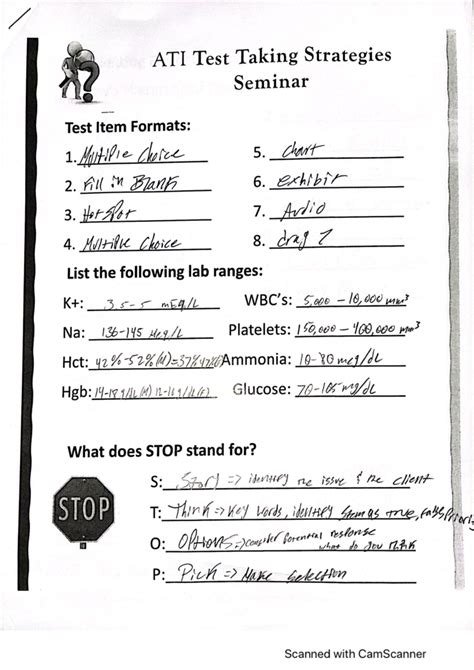 ATI Test Taking Strategies
Seminar
Test Item Formats:
1. Multiple Choice
2. Fill in Blank
3. Hot Spot
4. Multiple Choice
5. Chart
6. exhibit
7. Audio
8. drag
List the following lab ranges:
K+: 3.5-5 mEq/L
Na: 136-145
Hct: 42%-52% (M)
Hgb:
WBC's: 5,000 - 10,000 mm3
Platelets: 150,000 - 400,000 mm3
Ammonia: 10-80 mcg/dL
Glucose: 70-105 mg/dL
What does STOP stand for?
STOP
S: Story => identify the issue & the client
T: Think => Key words, identify stem as true,
O: Options => consider potential response
what do you think
P: Pick => Make selection
Scanned with CamScanner